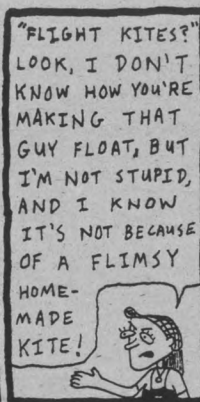 "FLIGHT KITES?"
LOOK, I DON'T
KNOW HOW YOU'RE
MAKING THAT
GUY FLOAT, BUT
I'M NOT STUPID,
AND I KNOW
IT'S NOT BECAUSE
OF A FLIMSY
HOME-
MADE
KITE!